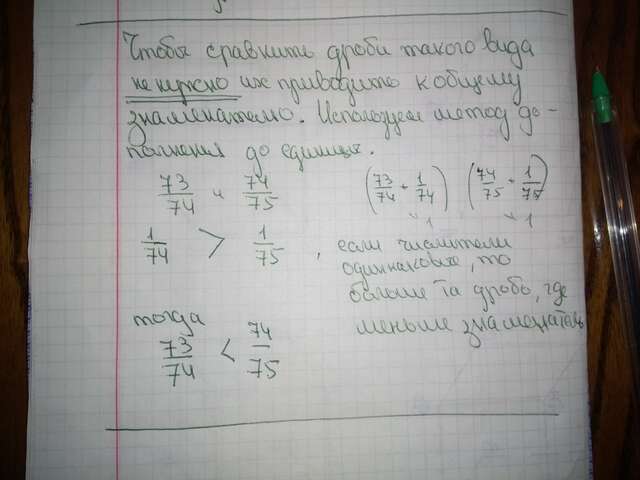 Чтобы сравнить дроби такого вида
не нужно их приводить к общему
знаменателю. Используем метод до-
полнения до единицы.
73/74 и 74/75 (73/74 + 1/74) (74/75 + 1/75)
1 1
1/74 > 1/75, если числители
одинаковые, то
больше та дробь, где
меньше знаменатель
тогда
73/74 < 74/75